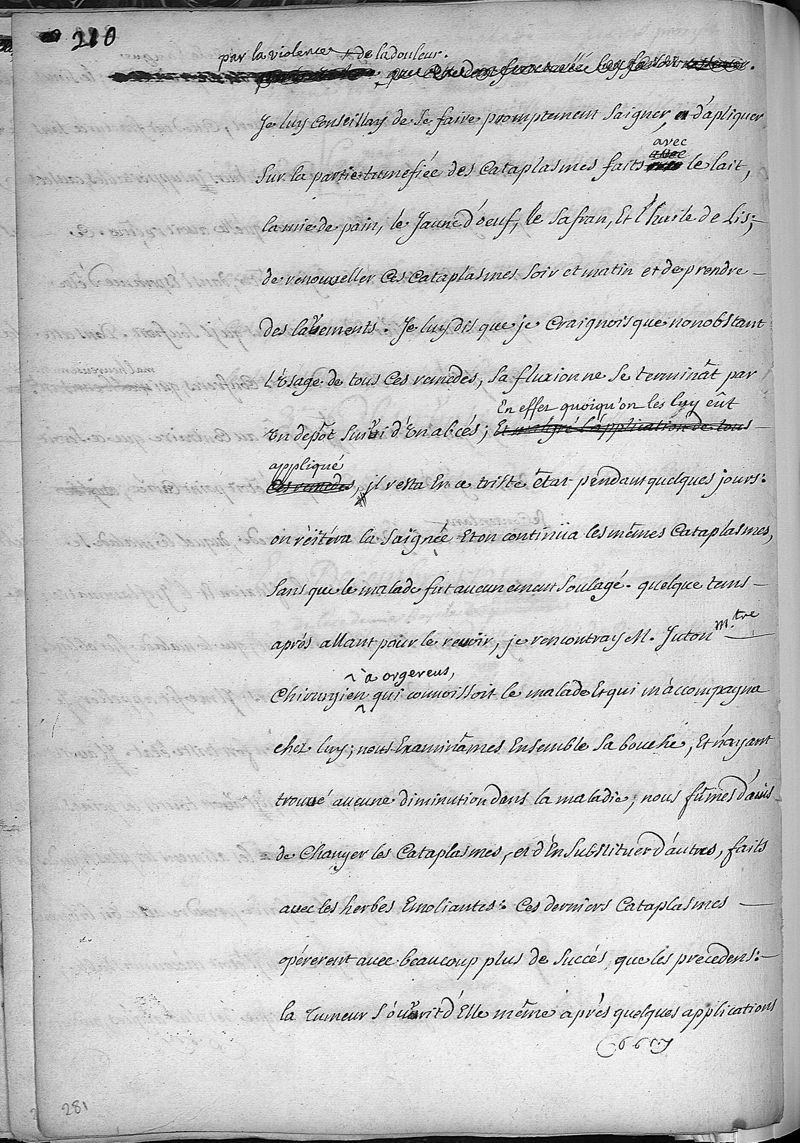 210
par la violence de la douleur.
Je luy conseillay de se faire promptement saigner, d'apliquer
avec
sur la partie tuméfiée des Cataplasmes faits le lait,
la mie de pain, le Jaune d'oeuf, le safran, Et l'huile de Lis;
de renouveller ces Cataplasmes soir et matin et de prendre
des lavements. Je luy dis que je craignois que nonobstant
l'Usage de tous ces remedes, sa fluxion ne se terminât par
En effet quoiqu'on les luy eût
Un depôt suivi d'Un abcés; Et malgré l'application de tous
appliqué
ces remedes, il resta En ce triste êtat pendant quelques jours:
on réïtéra la saignée Et on continüa les mêmes Cataplasmes,
sans que le malade fut aucunement soulagé. quelque tems
aprés allant pour le revoir, je rencontray M. Juton m.tre
à orgereus,
Chirurgien qui connoissoit le malade Et qui m'accompagna
chez luy; nous Examinâmes Ensemble sa bouche, Et n'ayant
trouvé aucune diminution dans la maladie; nous fûmes d'avis
de Changer les Cataplasmes, et d'En substituer d'autres, faits
avec les herbes Emoliantes: Ces derniers Cataplasmes
opérerent avec beaucoup plus de succés, que les precedens:
la Tumeur s'ouvrit d'Elle même aprés quelques applications
281